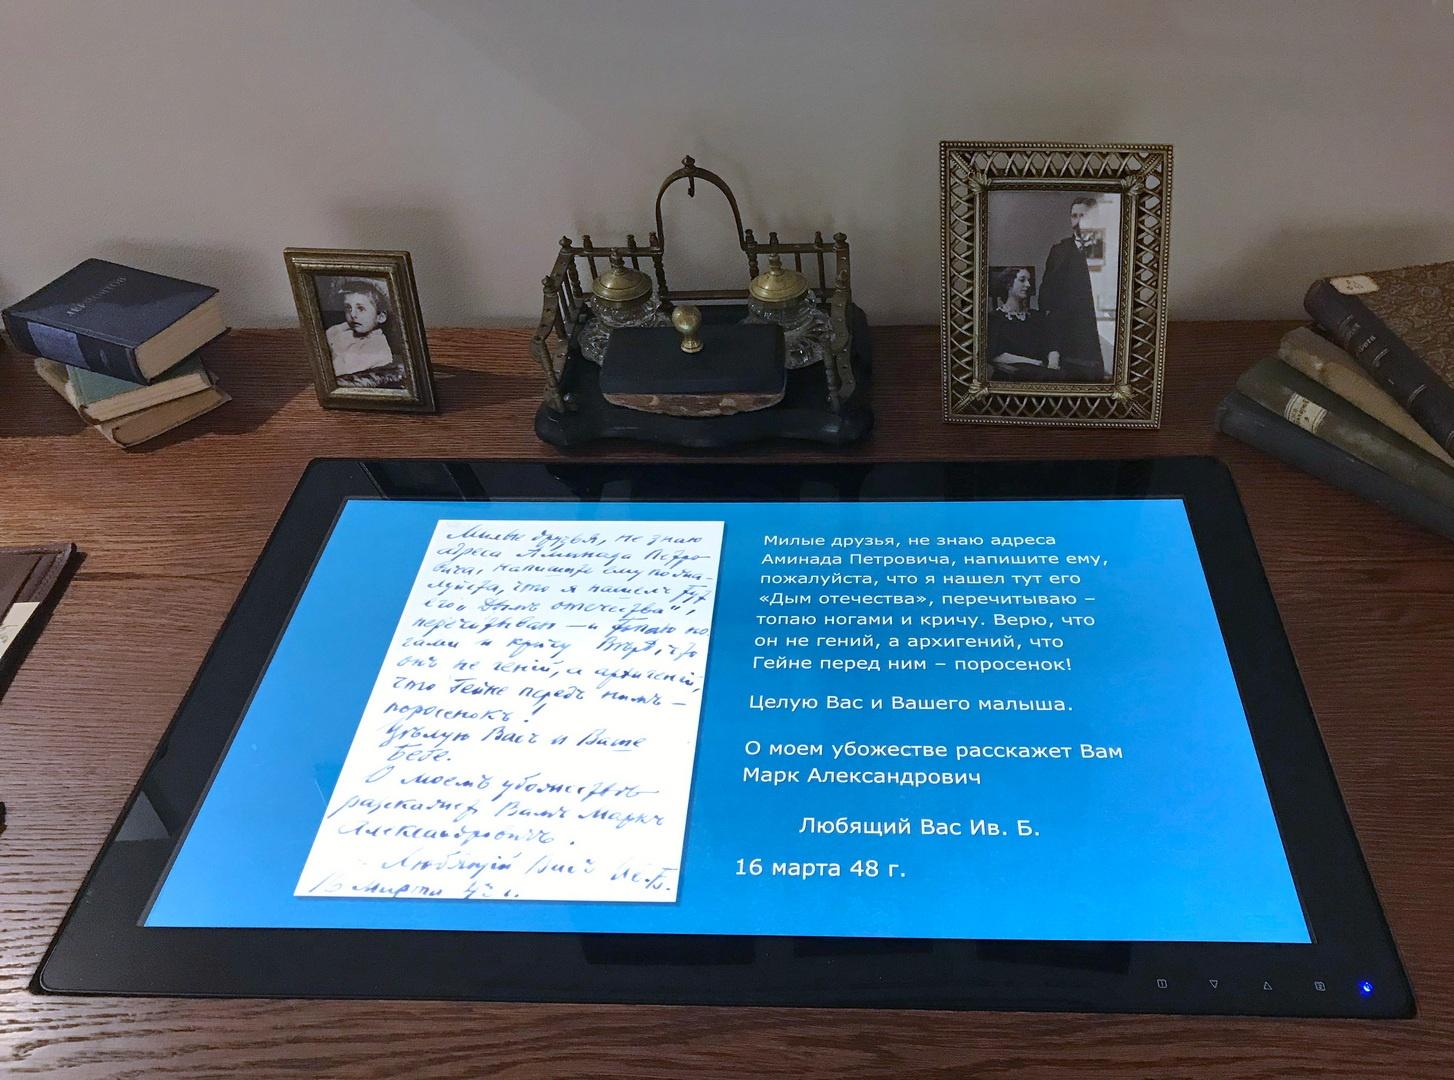 АВЕРМИТОВ
Милые друзья, не знаю
адреса Аминада Петро-
вича, напишите ему пожа-
луйста, что я нашелъ тут
его „Дымъ отечества",
перечитываю — и топаю но-
гами и кричу Вѣрю, что
онъ не геній, а архигеній,
что Гейне передъ нимъ —
поросенокъ!
Цѣлую Васъ и Ваше
Бебе.
О моемъ убожествѣ
разскажетъ Вамъ Маркъ
Александровичъ.
Любящій Васъ Ив. Б.
Марта г.
Милые друзья, не знаю адреса
Аминада Петровича, напишите ему,
пожалуйста, что я нашел тут его
«Дым отечества», перечитываю –
топаю ногами и кричу. Верю, что
он не гений, а архигений, что
Гейне перед ним – поросенок!
Целую Вас и Вашего малыша.
О моем убожестве расскажет Вам
Марк Александрович
Любящий Вас Ив. Б.
16 марта 48 г.